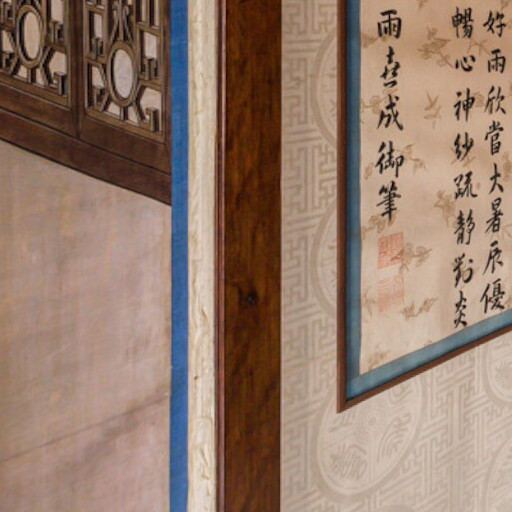 好雨欣當大暑辰優
暢心神紗疏靜對炎
雨喜成御筆